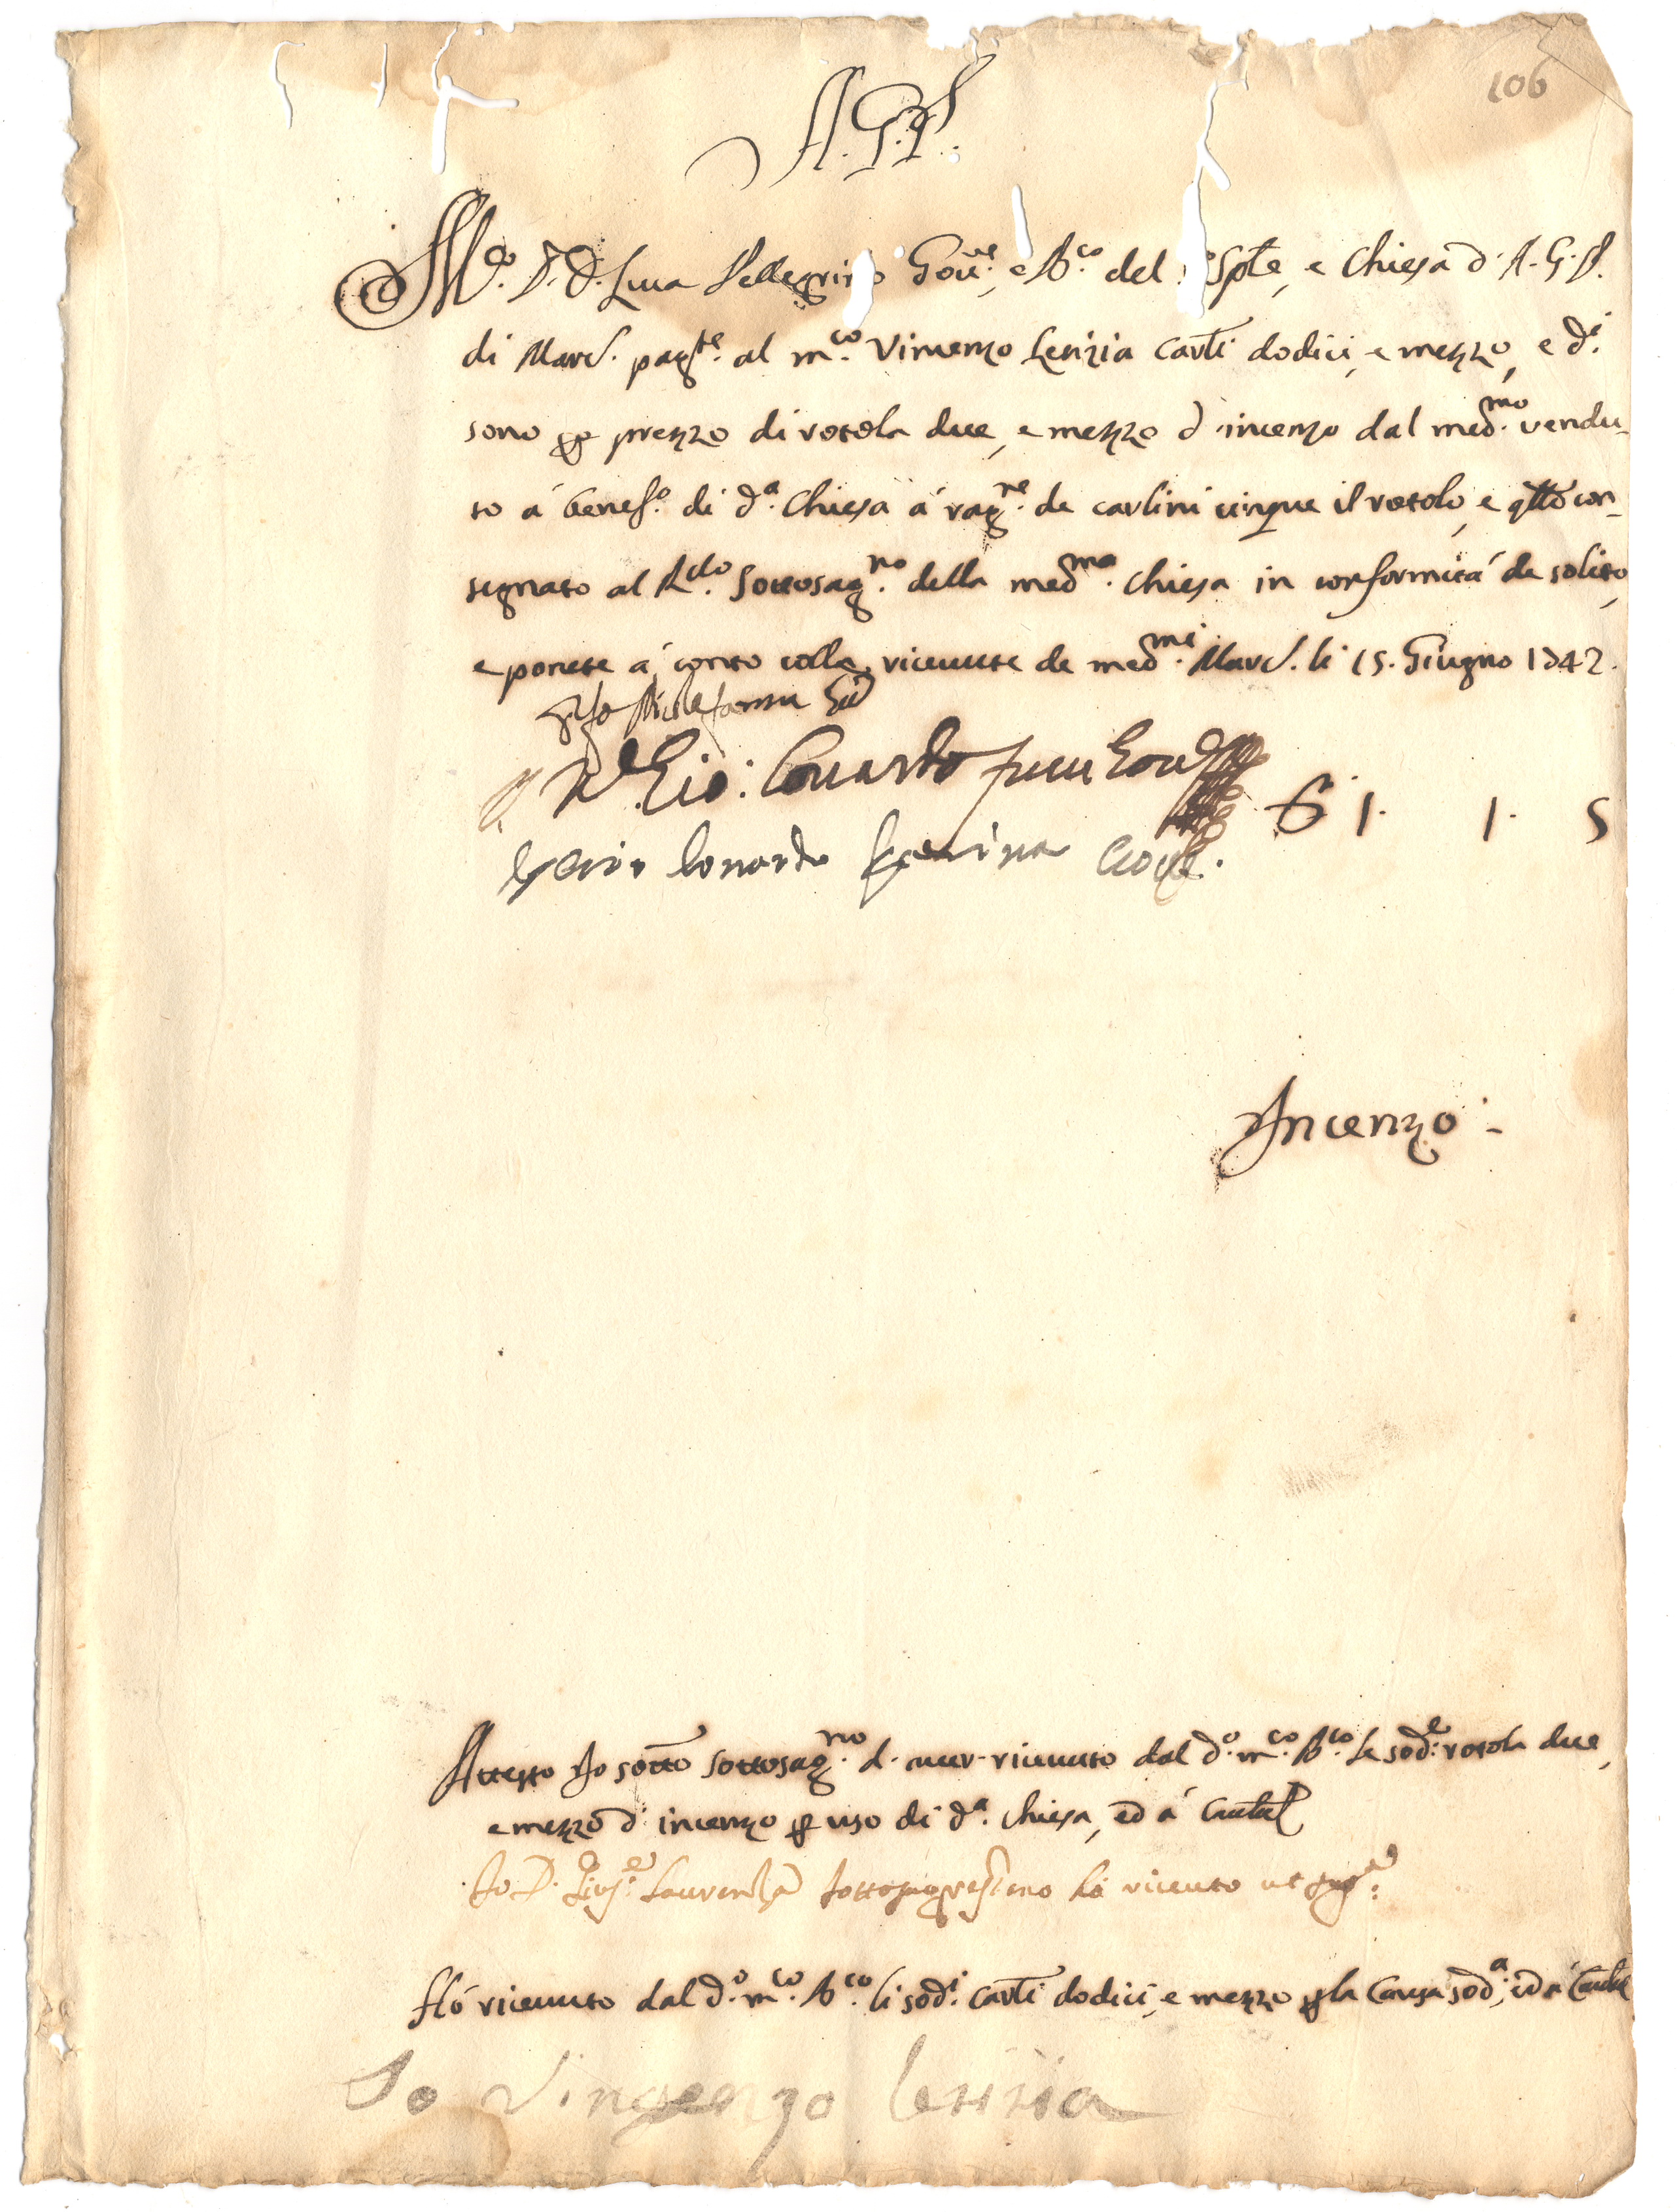 106
A. G. P.
M.co D. D. Luca Pellegrino Gov.re, e B.co del Sple, e Chiesa d' A. G. P.
di Mard. pag.te al m.co Vincenzo Lerizia Carli dodici, e mezzo, e d.i
sono per prezzo di rotola due, e mezzo d' incenzo dal med.mo vendu-
to á benef.o di d.a Chiesa á rag.ne de carlini cinque il rotolo, e qtto con-
segnato al R.do Sottosag.no della med.ma Chiesa in conformitá de solito,
e ponete á conto colla ricevute de med.mi Mard. li 15. Giugno 1742.
Gio: Lonardo Gov
Lonardo Gov.
D 1. 1. 5
Incenzo -
Attesto Io sotto Sottosag.no d' aver ricevuto dal d.o m.co B.co le sod.e rotola due,
e mezzo d' incenzo per uso di d.a Chiesa, ed á Cautel
Io D. Gius.e Laurenza sottosagrestano hó ricevuto ut sup.a
Hó ricevuto dal d.o m.co B.co li sod.i Carli dodici, e mezzo per la Causa sod.a, ed á Cautel
Io Vingenzo lerizia